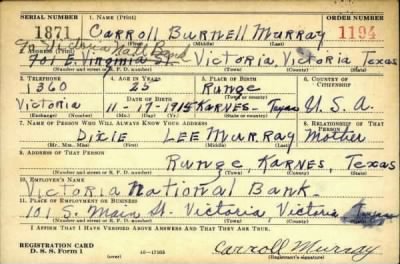 SERIAL NUMBER 1. NAME (Print) ORDER NUMBER
1871 Carroll Burnell Murray 1194
(First) (Middle) (Last)
% Victoria Natl Bank
2. ADDRESS (Print)
701 E. Virginia St. Victoria, Victoria, Texas
(Number and street or R. F. D. number) (Town) (County) (State)
3. TELEPHONE 4. AGE IN YEARS 5. PLACE OF BIRTH 6. COUNTRY OF CITIZENSHIP
1360 25 Runge
Victoria DATE OF BIRTH (Town or county)
11-17-1915 KARNES - Texas U. S. A.
(Exchange) (Number) (Mo.) (Day) (Yr.) (State or country)
7. NAME OF PERSON WHO WILL ALWAYS KNOW YOUR ADDRESS 8. RELATIONSHIP OF THAT PERSON
Dixie LEE Murray Mother
(Mr., Mrs., Miss) (First) (Middle) (Last)
9. ADDRESS OF THAT PERSON
Runge, KARNES, Texas
(Number and street or R. F. D. number) (Town) (County) (State)
10. EMPLOYER'S NAME
Victoria National Bank
11. PLACE OF EMPLOYMENT OR BUSINESS
101 S. Main St. Victoria, Victoria, Texas
(Number and street or R. F. D. number) (Town) (County) (State)
I AFFIRM THAT I HAVE VERIFIED ABOVE ANSWERS AND THAT THEY ARE TRUE.
REGISTRATION CARD
D. S. S. Form 1 16-17105 Carroll Murray
(Registrant's signature)